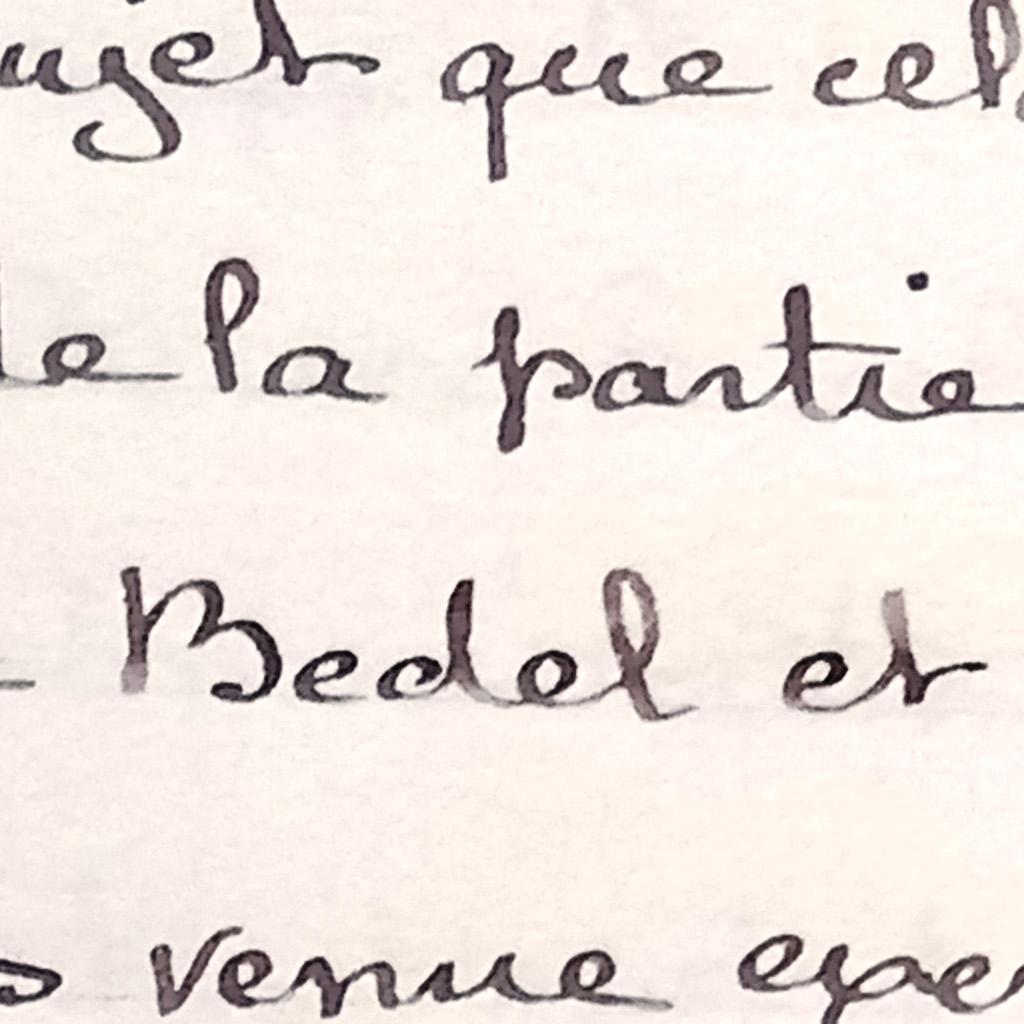 ujet que cel
de la partie
- Bedel et
s venue exe